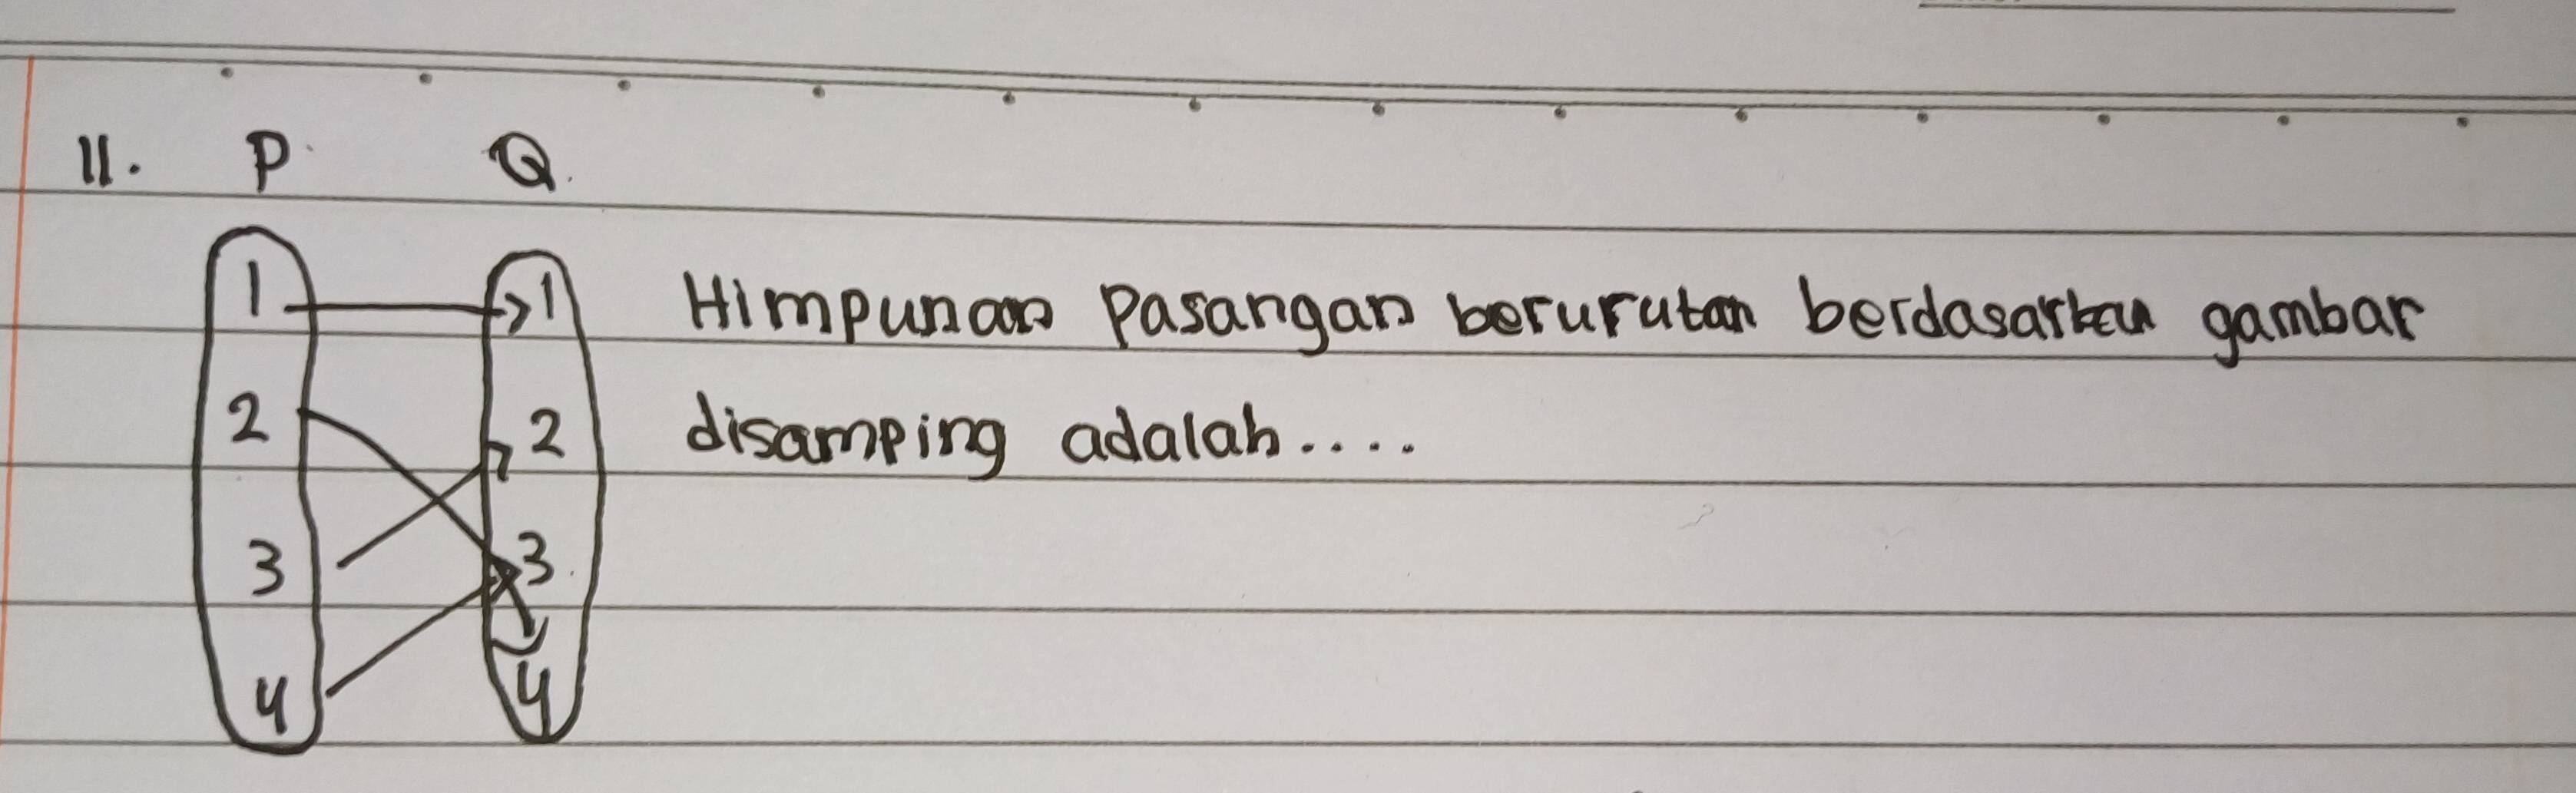 11. P Q
1 1 Himpunan Pasangan berurutan berdasarkan gambar
2 2 disamping adalah....
3 3
4 4